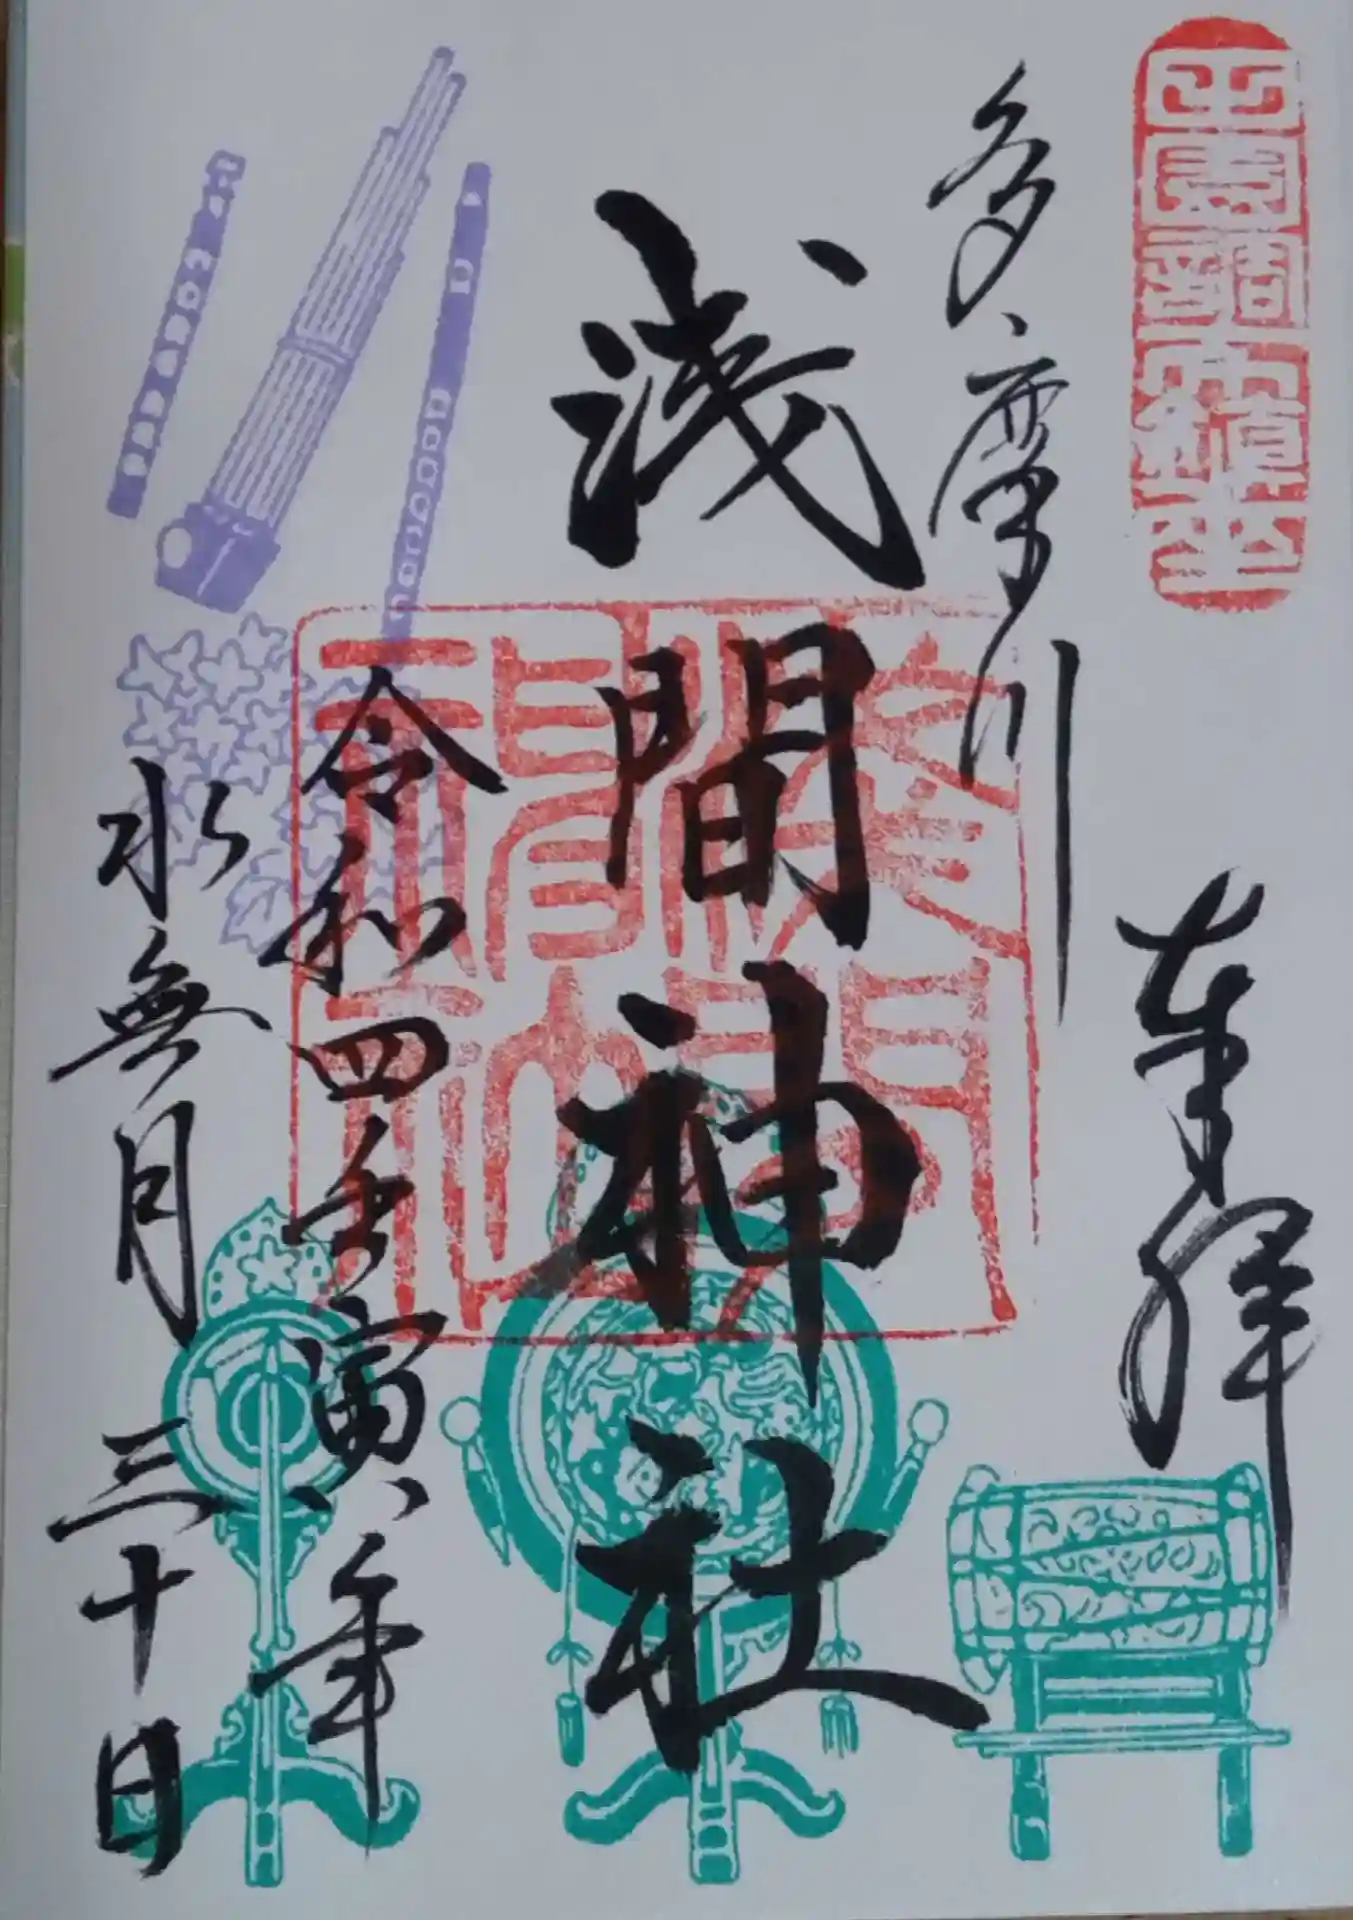 奉拝
多摩川
浅間神社
令和四壬寅年
水無月三十日